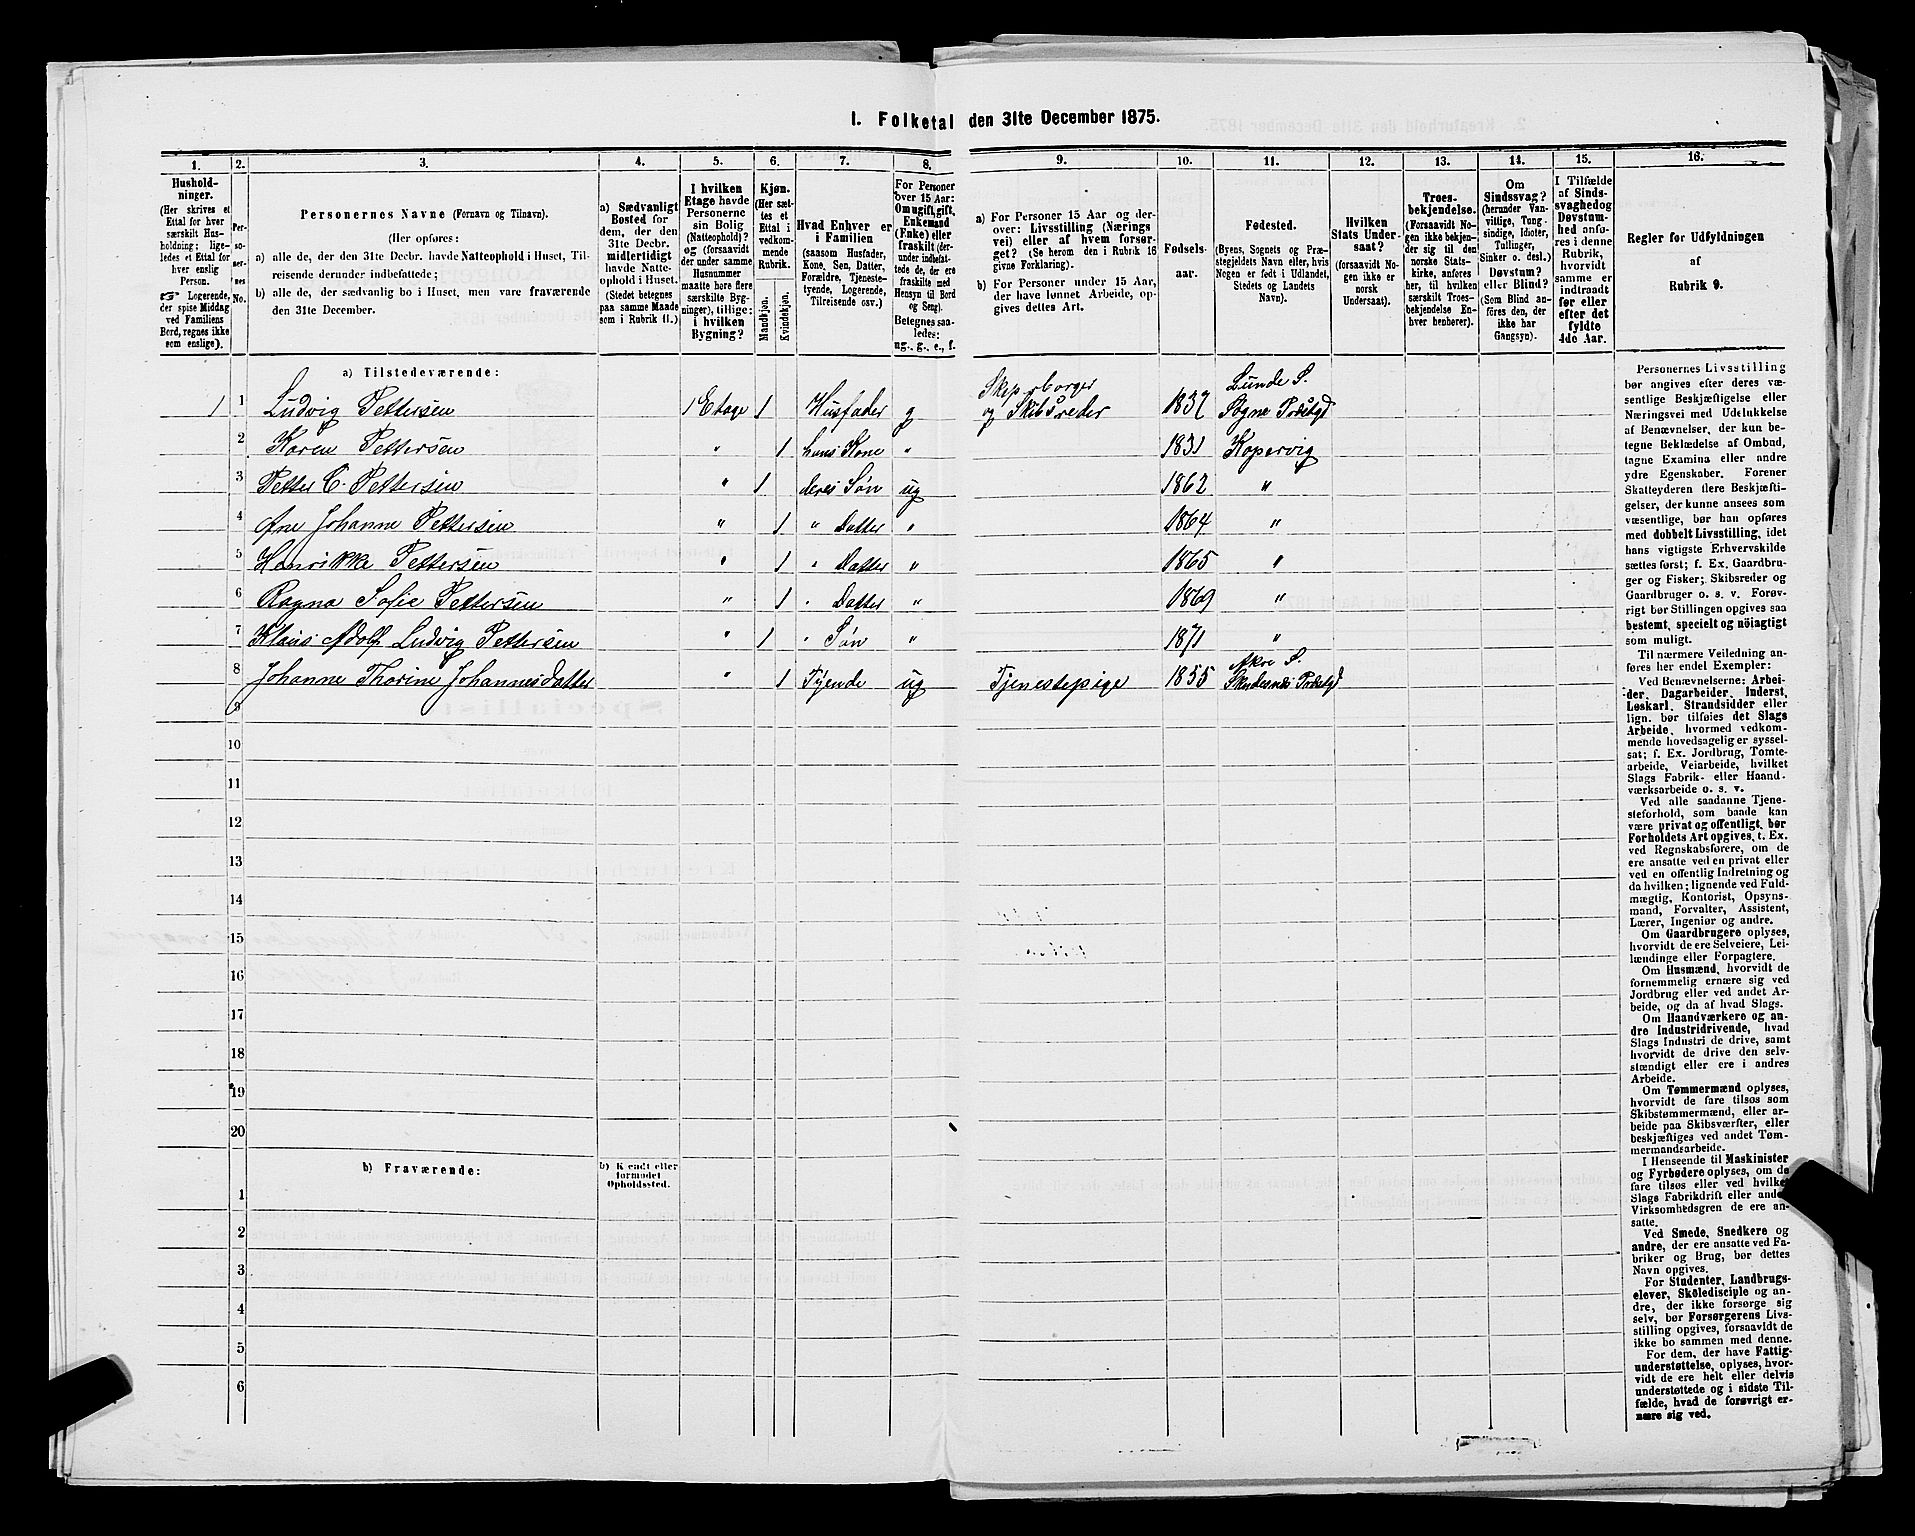 I. Folketal den 31te December 1875.
1. 2. 3. 4. 5. 6. 7. 8. 9. 10. 11. 12. 13. 14. 15. 16.
Husholdninger.
(Her skrives et
Ettal for hver
særskilt Husholdning;
ligeledes
et Ettal for
hver enslig
Person.
Logerende,
der spise Middag
ved Familiens
Bord, regnes ikke
som enslige).
Personernes No.
Personernes Navne (Fornavn og Tilnavn).
(Her opføres:
a) alle de, der den 31te Decbr. havde Natteophold i Huset, Tilreisende
derunder indbefattede;
b) alle de, der sædvanlig bo i Huset, men vare fraværende
den 31te December.
a) Sædvanligt
Bosted for
dem, der den
31te Decbr.
midlertidigt
havde Natteophold
i Huset.
(Stedet betegnes
paa samme Maade
som i Rubrik 11.)
I hvilken
Etage havde
Personerne
sin Bolig
(Natteophold)?
og (forsaavidt
der under samme
Husnummer
maatte høre flere
særskilte Bygninger),
tillige:
i hvilken
Bygning?
Kjøn.
(Her sættes
et
Ettal i
vedkommende
Rubrik.
Mandkjøn.
Kvindekjøn.
Hvad Enhver er
i Familien
(saasom Husfader,
Kone, Søn, Datter,
Forældre, Tjenestetyende,
Logerende,
Tilreisende osv.)
For Personer
over 15 Aar:
Om ugift, gift,
Enkemand
(Enke) eller
fraskilt (derunder
indbefattede
de, der ere
fraskilte med
Hensyn til Bord
og Seng).
Betegnes saaledes:
ug., g., e., f.
a) For Personer 15 Aar og derover:
Livsstilling (Næringsvei)
eller af hvem forsørget?
(Se herom den i Rubrik 16
givne Forklaring).
b) For Personer under 15 Aar,
der have lønnet Arbeide, opgives
dettes Art.
Fødselsaar.
Fødested.
(Byens, Sognets og Præstegjeldets
Navn eller, hvis
Nogen er født i Udlandet,
Stedets og Landets
Navn).
Hvilken
Stats Undersaat?
(forsaavidt Nogen
ikke er
norsk
Undersaat).
Troesbekjendelse.
(Forsaavidt Nogen
ikke bekjender
sig til den
norske Statskirke,
anføres
her, til hvilken
særskilt Troesbekjendelse
Enhver
henhører).
Om
Sindssvag?
(herunder Vanvittige,
Tungsindige,
Idioter,
Tullinger,
Sinker o. desl.)
Døvstum?
eller Blind?
(Som Blind anføres
den, der
ikke har
Gangsyn).
I Tilfælde
af Sindssvaghed
og
Døvstumhed
anføres
i denne
Rubrik,
hvorvidt
samme er
indtraadt
før eller
efter det
fyldte
4de Aar.
Regler før Udfyldningen
af
Rubrik 9.
a) Tilstedeværende:
1 1 Ludvig Pettersen 1 Etage 1 Husfader g Skipsborger og Skibsreder 1837 Lunde S. Sogne Præstgd
2 Karen Pettersen " 1 hans Kone " 1831 Kopervig
3 Petter C. Pettersen " 1 deres Søn ug 1862 "
4 Ane Johanne Pettersen " 1 " Datter " 1864 "
5 Henrikke Pettersen " 1 " Datter " 1865 "
6 Ragna Sofie Pettersen " 1 " Datter " 1869 "
7 Klaus Adolf Ludvig Pettersen " 1 " Søn " 1871 "
8 Johanne Thorine Johannesdatter " 1 Tyende ug Tjenestepige 1855 Akre S. Skudesnæs Præstgd
9
10
11
12
13
14
15
16
17
18
19
20
b) Fraværende:
b) Kjendt eller
formodet
Opholdssted.
1
2
3
4
5
6
Personernes Livsstilling
bør angives efter deres væsentlige
Beskjæftigelse eller
Næringsvei med Udelukkelse
af Benævnelser, der kun betegne
Beklædelse af Ombud,
tagne Examina eller andre
ydre Egenskaber. Forener
Skatteyderen flere Beskjæftigelser,
der kunne ansees som
væsentlige, bør han opføres
med dobbelt Livsstilling, idet
hans vigtigste Erhvervskilde
sættes først; f. Ex. Gaardbruger
og Fisker; Skibsreder og
Gaardbruger o. s. v. Forøvrigt
bør Stillingen opgives saa
bestemt, specielt og nöiagtigt
som muligt.
Til nærmere Veiledning anføres
her endel Exempler:
Ved Benævnelserne: Arbeider,
Dagarbeider, Inderst,
Løskarl, Strandsidder eller
lign. bør tilføies det Slags
Arbeide, hvormed vedkommende
hovedsagelig er sysselsat;
f. Ex. Jordbrug, Tomtearbeide,
Veiarbeide, hvilket
Slags Fabrik- eller Haandværksarbeide
o. s. v.
Ved alle saadanne Tjenesteforhold,
som baade kan
være privat og offentligt, bør
Forholdets Art opgives, t. Ex.
ved Regnskabsførere, om de
ere ansatte ved en privat eller
ved en offentlig Indretning og
da hvilken; lignende ved Fuldmægtig,
Kontorist, Opsynsmand,
Forvalter, Assistent,
Lærer, Ingeniør og andre.
Om Gaardbrugere oplyses,
hvorvidt de ere Selveiere, Leilændinge
eller Forpagtere.
Om Husmænd, hvorvidt de
fornemmelig ernære sig ved
Jordbrug eller ved andet Arbeide,
og da af hvad Slags.
Om Haandværkere og andre
Industridrivende, hvad
Slags Industri de drive, samt
hvorvidt de drive den selvstændigt
eller ere i andres
Arbeide.
Om Tømmermænd oplyses,
hvorvidt de fare tilsøs som
Skibstømmermænd, eller arbeide
paa Skibsværfter, eller
beskjæftiges ved andet Tømmermandsarbeide.
I Henseende til Maskinister
og Fyrbødere oplyses, om de
fare tilsøs eller ved hvilket
Slags Fabrikdrift eller anden
Virksomhedsgren de ere ansatte.
Ved Smede, Snedkere og
andre, der ere ansatte ved Fabriker
og Brug, bør dettes
Navn opgives.
For Studenter, Landbrugselever,
Skoledisciple og andre,
der ikke forsørge sig
selv, bør Forsørgerens Livsstilling
opgives, forsaavidt de
ikke bo sammen med denne.
For dem, der have Fattigunderstøttelse,
oplyses, hvorvidt
de ere helt eller delvis
understøttede og i sidste Tilfælde,
hvad de forøvrigt ernære
sig ved.